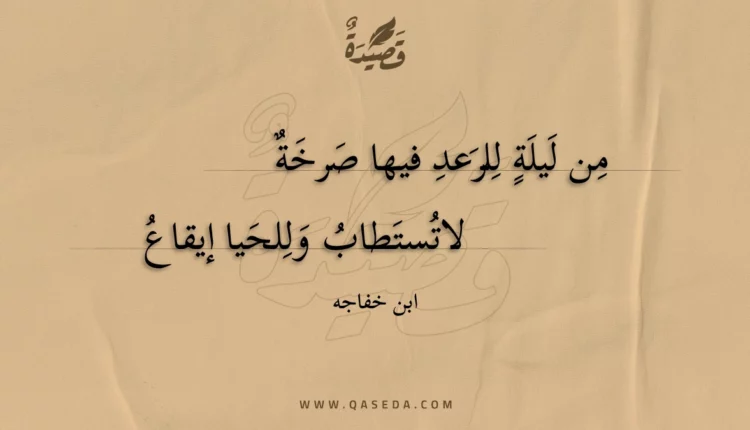 قَصِيْدَةٌ
مِن لَيلَةٍ لِلرَعدِ فيها صَرخَةٌ
لاتُستَطابُ وَلِلحَيا إيقاعُ
ابن خفاجه
WWW.QASEDA.COM